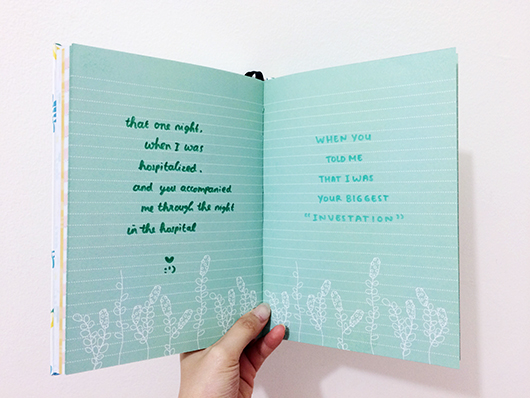 that one night,
when I was
hospitalized.
and you accompanied
me through the night
in the hospital
:')
WHEN YOU
TOLD ME
THAT I WAS
YOUR BIGGEST
"INVESTATION"